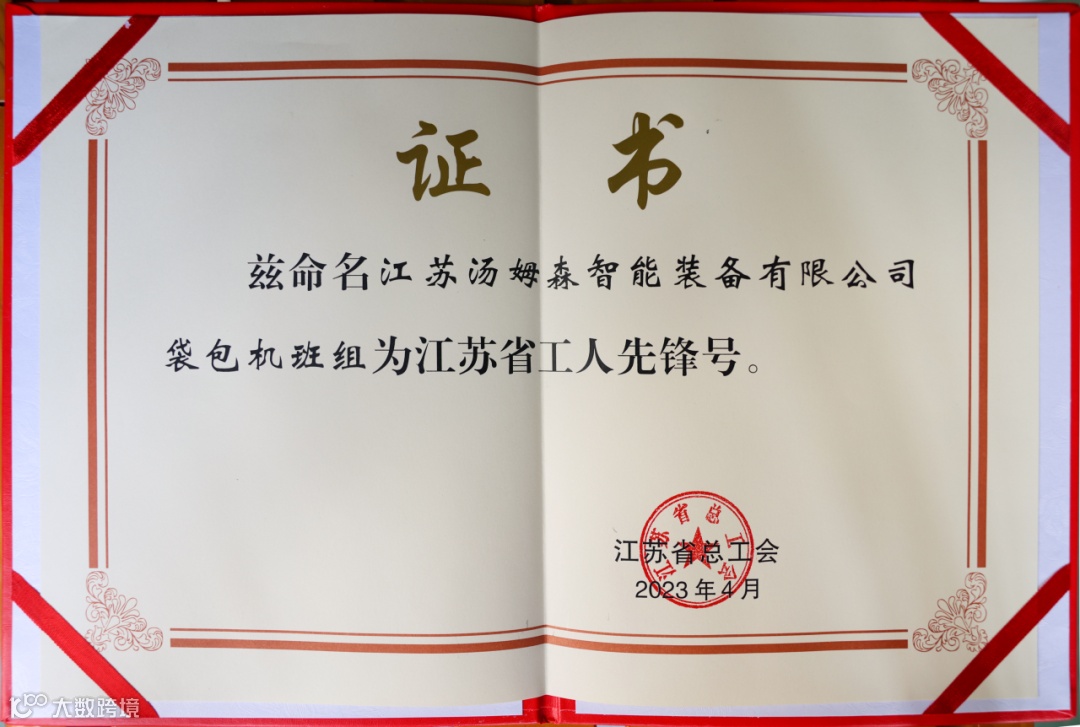 证书
兹命名江苏汤姆森智能装备有限公司
袋包机班组为江苏省工人先锋号。
江苏省总工会
江苏省总工会
2023年4月
大数跨境